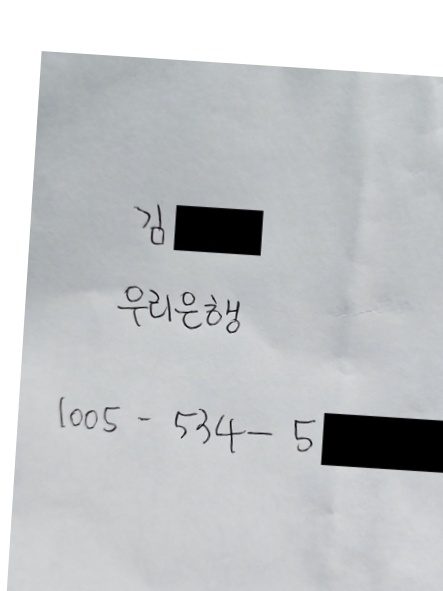 김
우리은행
1005 - 534 - 5